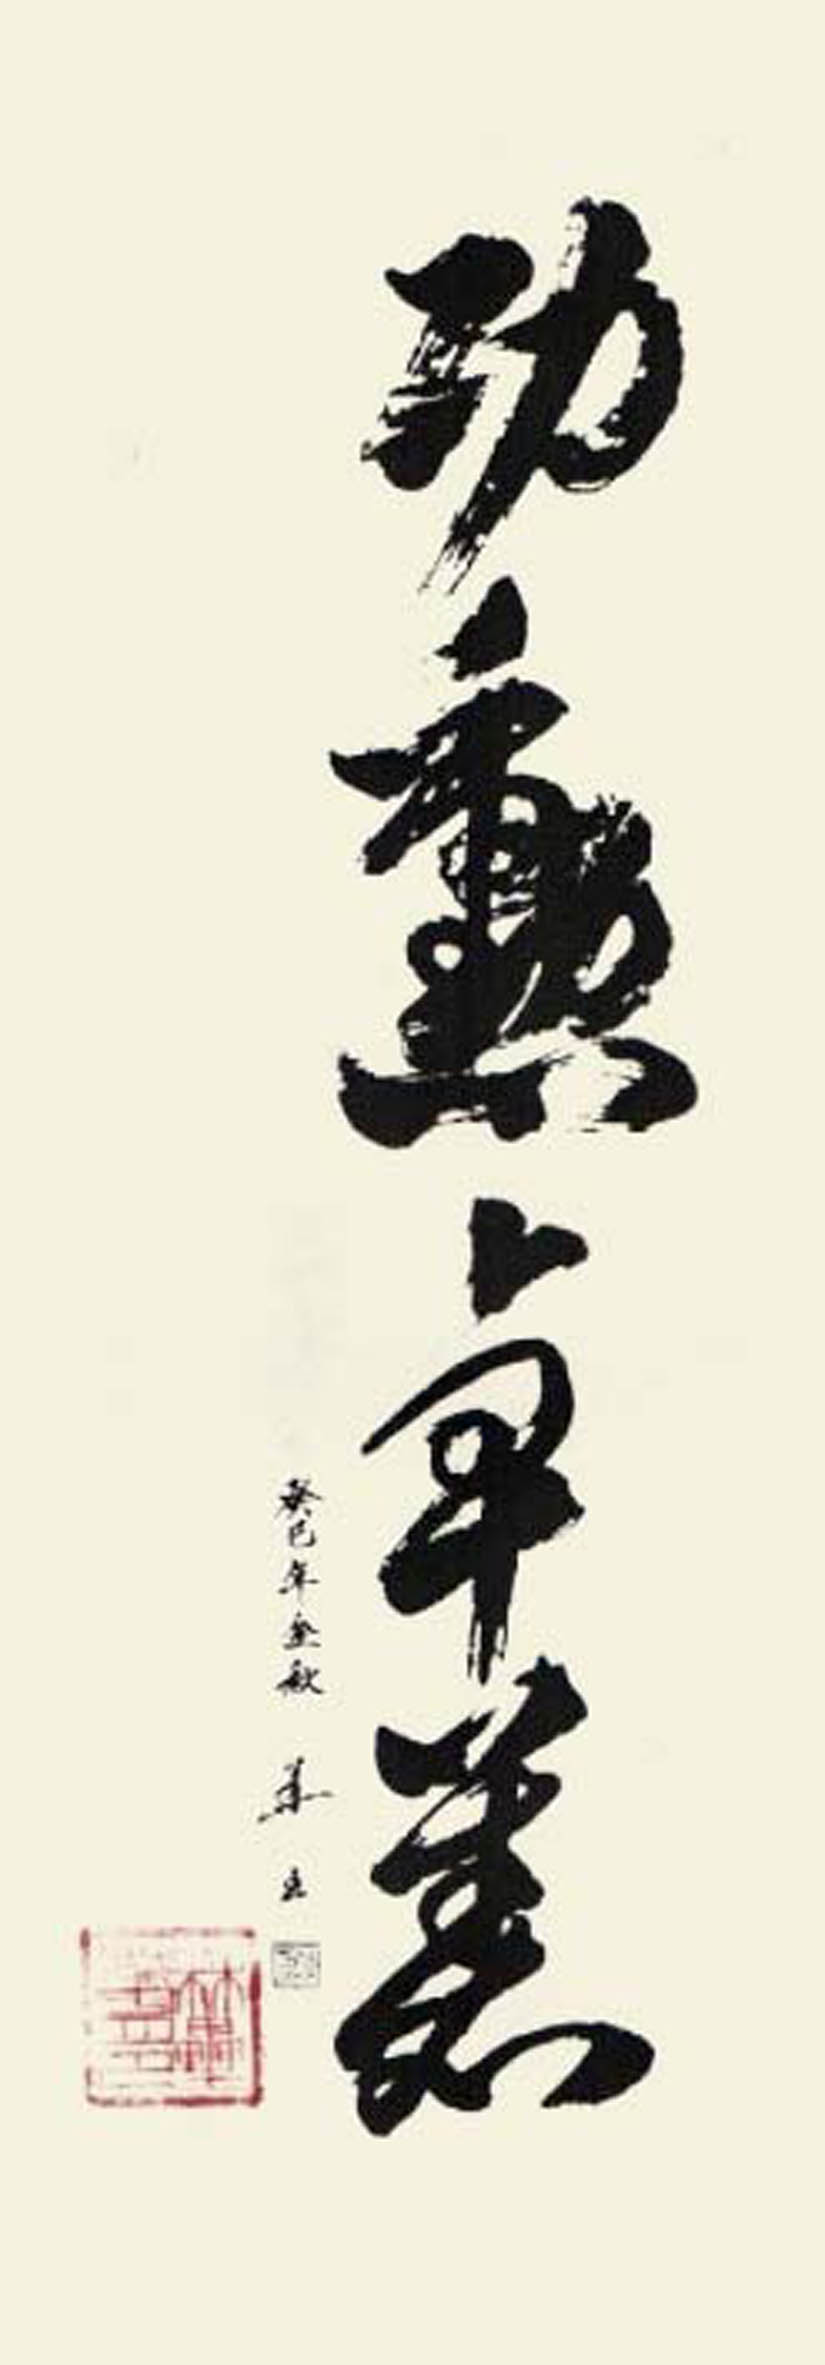 功勳卓著
癸巳年金秋